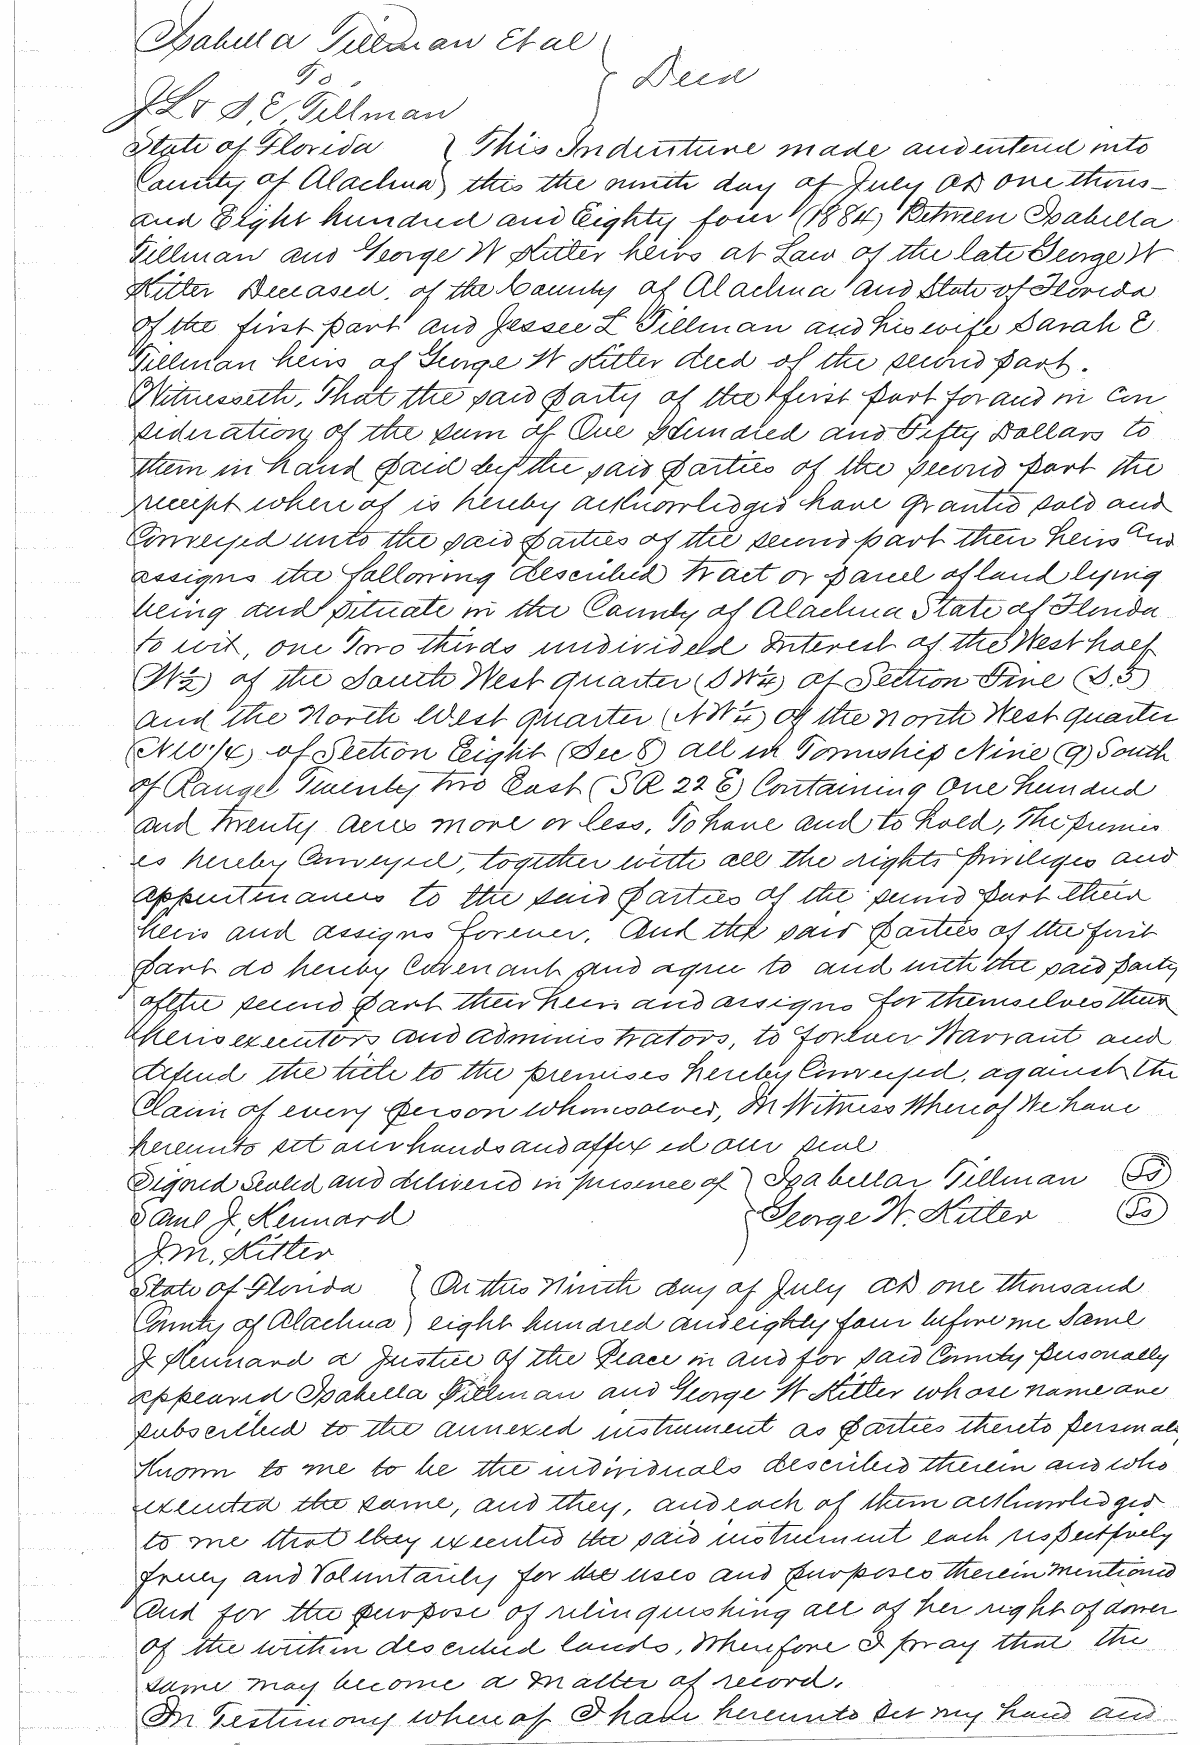 Isabella Tillman Et al
To
J L & S. E. Tillman } Deed
State of Florida } This Indenture made and entered into
County of Alachua } this the ninth day of July AD one thous-
and Eight hundred and Eighty four (1884) Between Isabella
Tillman and George W Kitler heirs at Law of the late George W
Kitler Deceased, of the County of Alachua and State of Florida
of the first part and Jessee L Tillman and his wife Sarah E
Tillman heirs of George W Kitler decd of the second part.
Witnesseth, That the said party of the first part for and in con
sideration of the sum of One Hundred and Fifty Dollars to
them in hand paid by the said parties of the second part the
receipt where of is hereby acknowledged have granted sold and
Conveyed unto the said parties of the second part their heirs and
assigns the following described tract or parcel of land lying
being and situate in the County of Alachua State of Florida
to wit, one Two thirds undivided Interest of the West half
(W½) of the South West quarter (SW¼) of Section Five (S.5)
and the North West quarter (NW¼) of the North West quarter
(NW1/4) of Section Eight (Sec 8) all in Township Nine (9) South
of Range Twenty two East (SR 22 E) Containing one hundred
and twenty acres more or less, To have and to hold, The premis
es hereby Conveyed, together with all the rights privileges and
appurtenances to the said parties of the second part their
heirs and assigns forever. And the said parties of the first
part do hereby Covenant and agree to and with the said party
of the second part their heirs and assigns for themselves their
heirs executors and administrators, to forever Warrant and
defend the title to the premises hereby Conveyed, against the
Claim of every person whomsoever, In Witness Whereof We have
hereunto set our hands and affixed our seal
Signed Sealed and delivered in presence of } Isabellar Tillman Ss
Saml J. Kennard } George W. Kitler Ss
J. M. Kitler
State of Florida } On this Ninth day of July AD one thousand
County of Alachua } eight hundred and eighty four before me Saml
J Kennard a Justice of the Peace in and for said County personally
appeared Isabella Tillman and George W Kitler whose name are
subscribed to the annexed instrument as parties thereto personaly
Known to me to be the individuals described therein and who
executed the same, and they, and each of them acknowledged
to me that they executed the said instrument each respectfvely
freely and Voluntarily for the uses and purposes therein mentioned
And for the purpose of relinquishing all of her right of dower
of the within described lands, Wherefore I pray that the
same may become a matter of record.
In Testimony where of I have hereunto set my hand and